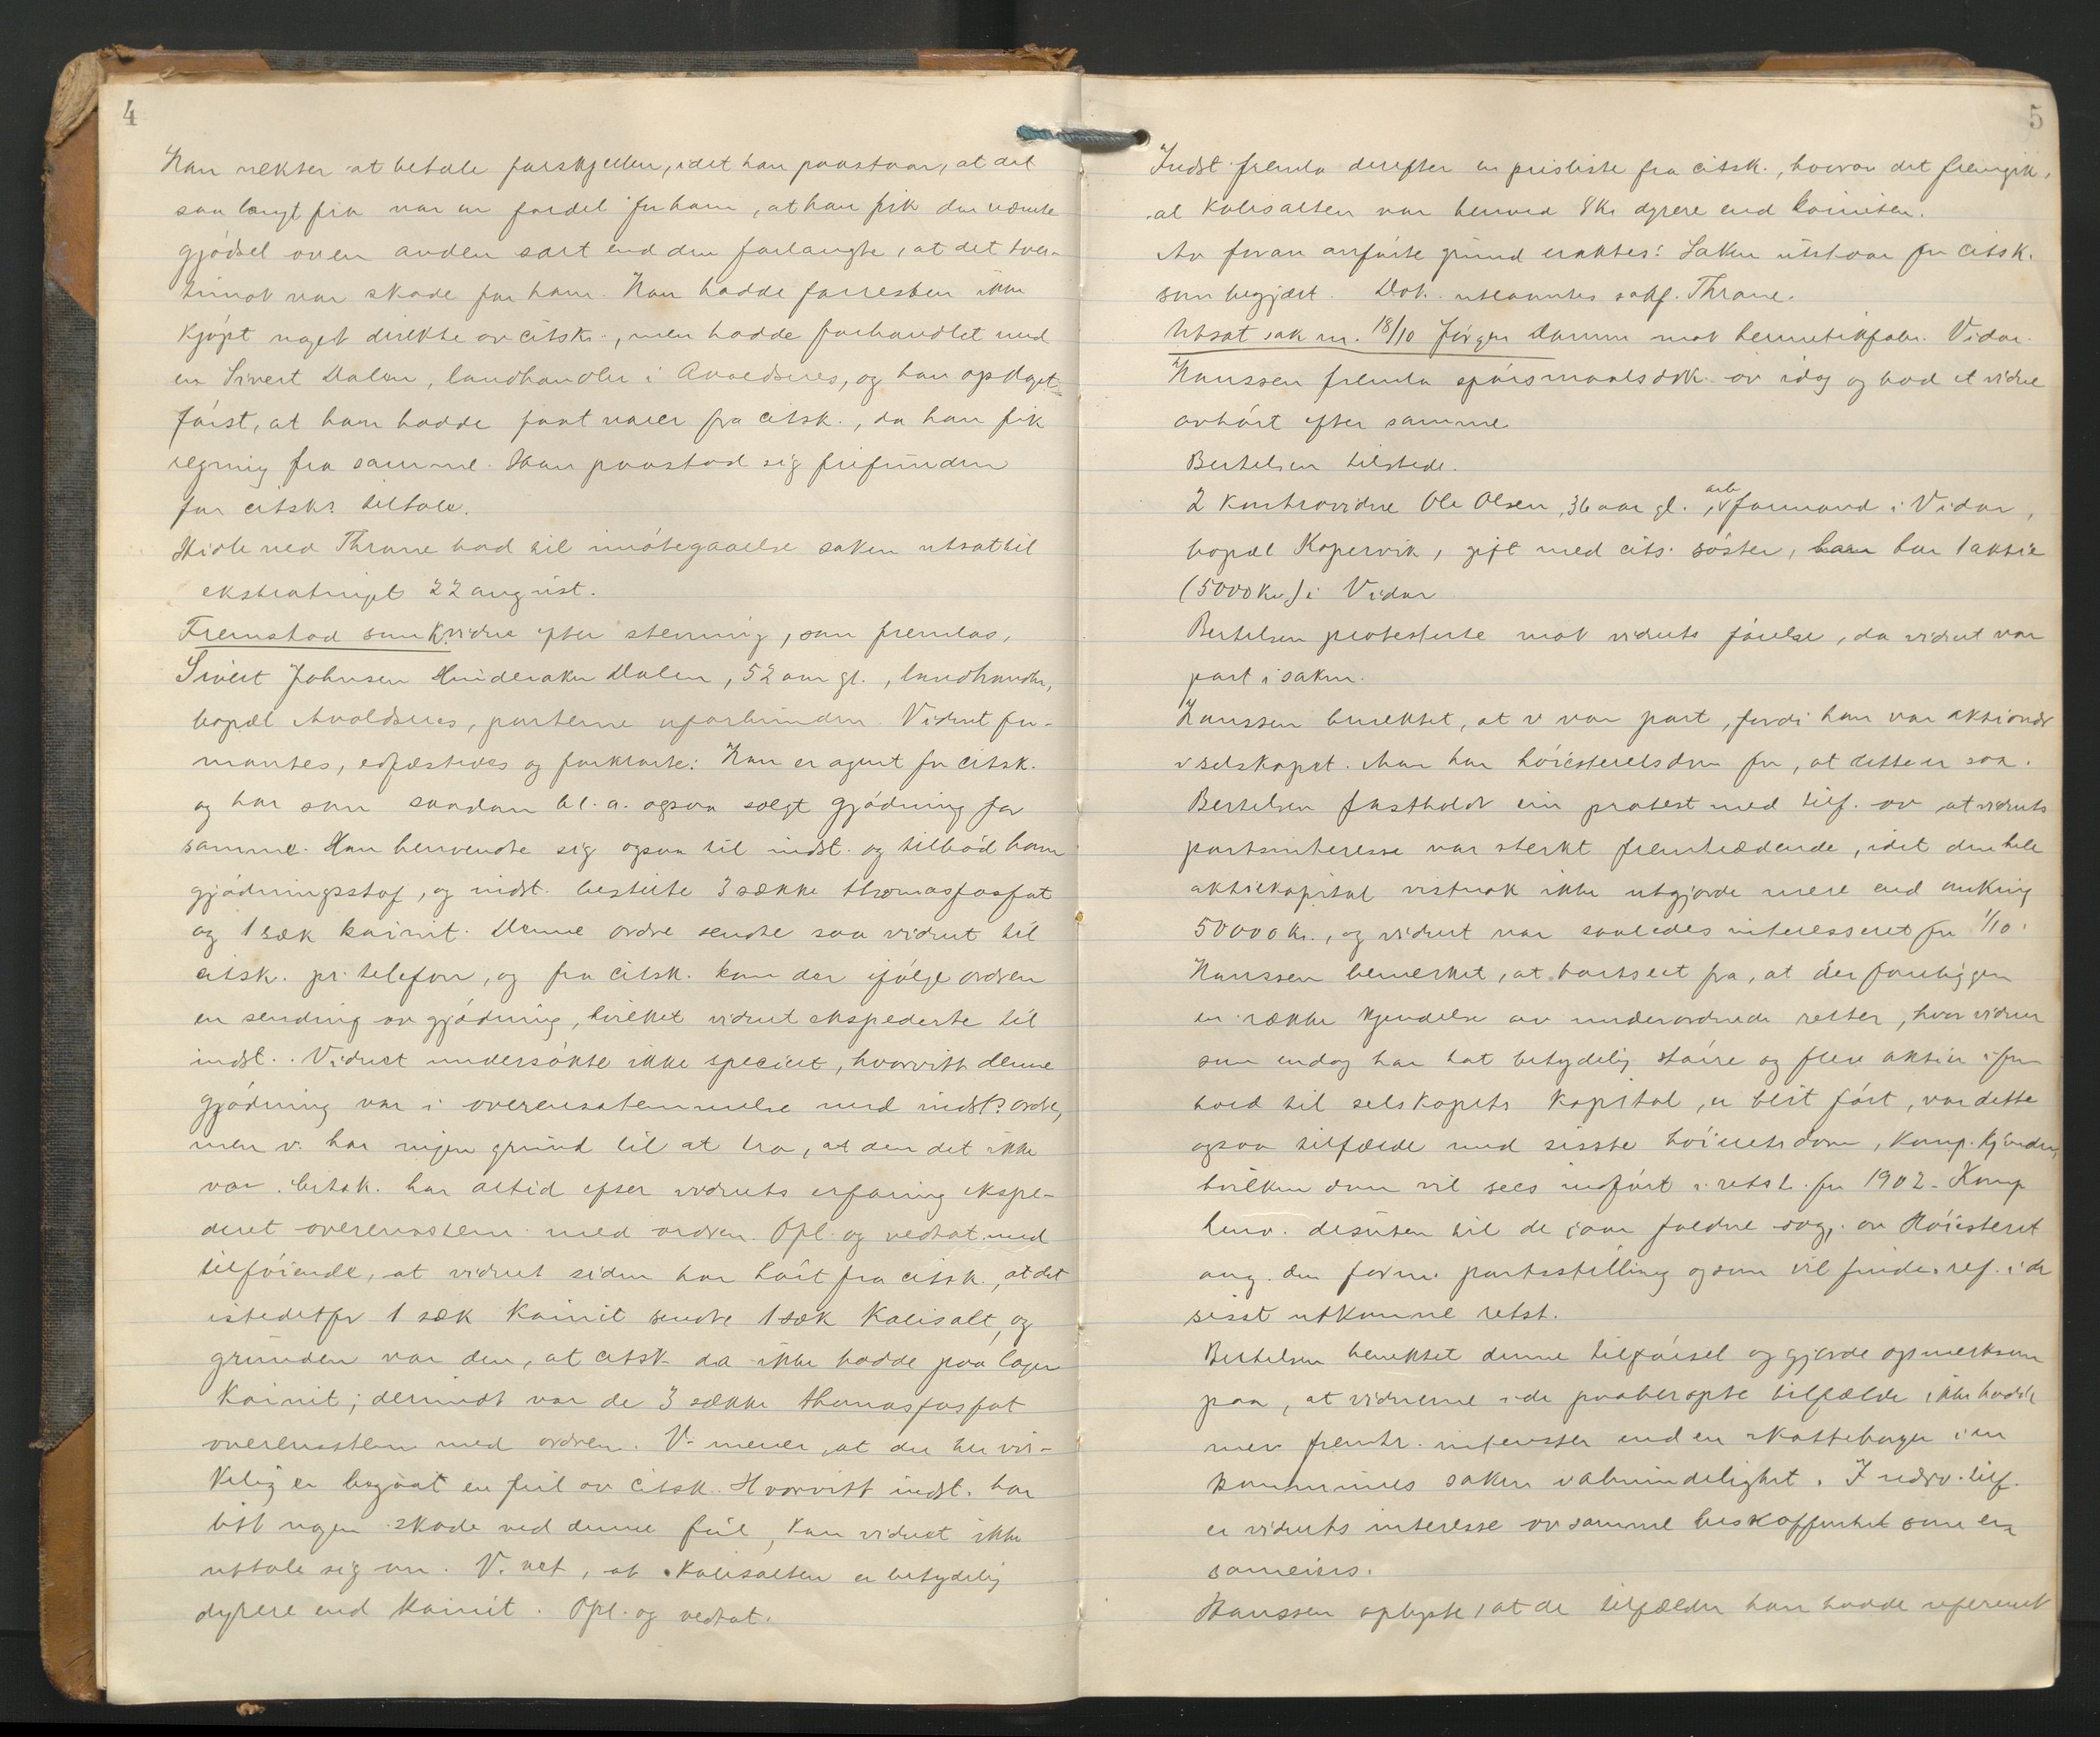 4
Han nekter at betale forskjellen, idet han paastaar, at det
saa langt fra var en fordel for ham, at han fik den nævnte
gjödsel av en anden sort end den forlangte, at det tver-
timot var skade for ham. Han hadde forresten ikke
kjöpt noget direkte av citsk., men hadde forhandlet med
en Sivert Dalen, landhandler i Avaldsnes, og han opdaget
först, at han hadde faat varer fra citsk., da han fik
regning fra samme. Han paastod sig frifunden
for citsks tiltale.
ved Thrane bad til imötegaaelse saken utsat til
ekstratinget 22 august.
Fremstod som K.vidne efter stevning, som fremlas,
Sivert Johnsen Dalen, 52 aar gl., landhandler,
bopæl Avaldsnes, parterne uforbunden. Vidnet for-
mantes, edfæstedes og forklarte: Han er agent for citsk.
og har som saadan bl.a. ogsaa solgt gjödning for
samme. Han henvendte sig ogsaa til indst. og tilböd ham
gjödningsstof, og indst. bestilte 3 sække thomasfosfat
og 1 sæk kainit. Denne ordre sendte saa vidnet til
citsk. pr. telefon, og fra citsk. kom der ifölge ordren
en sending av gjödning, hvilket vidnet ekspederte til
indst. Vidnet undersökte ikke specielt, hvorvitt denne
gjödning var i overensstemmelse med indst.s ordre,
men v. har ingen grund til at tro, at den det ikke
var. Citsk. har altid efter vidnets erfaring ekspe-
deret overensstem. med ordren. Opl. og vedtat med
tilföiende, at vidnet siden har hört fra citsk., at det
istedetfor 1 sæk Kainit sendte 1 sæk Kalisalt, og
grunden var den, at citsk. da ikke hadde paa lager
Kainit; derimot var de 3 sække thomasfosfat
overensstem. med ordren. V. mener, at der her vir-
kelig er begaaat en feil av citsk. Hvorvitt indst. har
litt nogen skade ved denne feil, kan vidnet ikke
uttale sig om. V. vet, at Kalisalten er betydelig
dyrere end Kainit. Opl. og vedtat.
5
Indst fremla derefter en prisliste fra citsk., hvorav det fremgik,
at Kalisalten var henved 8 Kr dyrere end kainiten.
Av foran anförte grund eraktes: Saken utstaar for citsk.
som begjært. Dok. utlaantes sakf. Thrane.
Utsat sak nr. 18/10 Jörgen Damm mot hermetikfabr. Vidar.
Hanssen fremla spörsmaalsdok. av idag og bad et vidne
avhört efter samme.
Bertelsen tilstede.
2 Kontravidne Ole Olsen, 36 aar gl., arb formand i Vidar,
bopæl Kopervik, gift med cits. söster, har 1 aktie
(5000 Kr.) i Vidar
Bertelsen protesterte mot vidnets förelse, da vidnet var
part i saken.
Hanssen benektet, at v var part, fordi han var aktionær
i selskapet. Man har höiesteretsdom for, at dette er saa.
Bertelsen fastholdt sin protest med tilf. av at vidnets
partsinteresse var sterkt fremtrædende, idet den hele
aktiekapital vistnok ikke utgjorde mere end omkring
50000 kr., og vidnet var saaledes interesseret for 1/10.
Hanssen bemerket, at bortseet fra, at der foreligger
en række kjendelser av underordnede retter, hvor vidner
som endog har hat betydelig större og flere aktier i for-
hold til selskapets Kapital, er blit fört, var dette
ogsaa tilfælde med sisste höiesteretsdom, Komp. kjender,
hvilken dom vil sees indfört i retst. for 1902. Komp
henv. desuten til de i aar faldne avgj. av Höiesteret
ang. den form. partsstilling og som vil findes ref. i de
sisst utkomne retst.
Bertelsen benektet denne tilförsel og gjorde opmerksom
paa, at vidnerne i de paaberopte tilfælde ikke hadde
mer fremtr. interesser end en skatteborger i en
kommunes saker i almindelighet. I nærv. tilf.
er vidnets interesse av samme beskaffenhet som en
sameiers.
Hanssen oplyste, at de tilfælder han hadde refereret